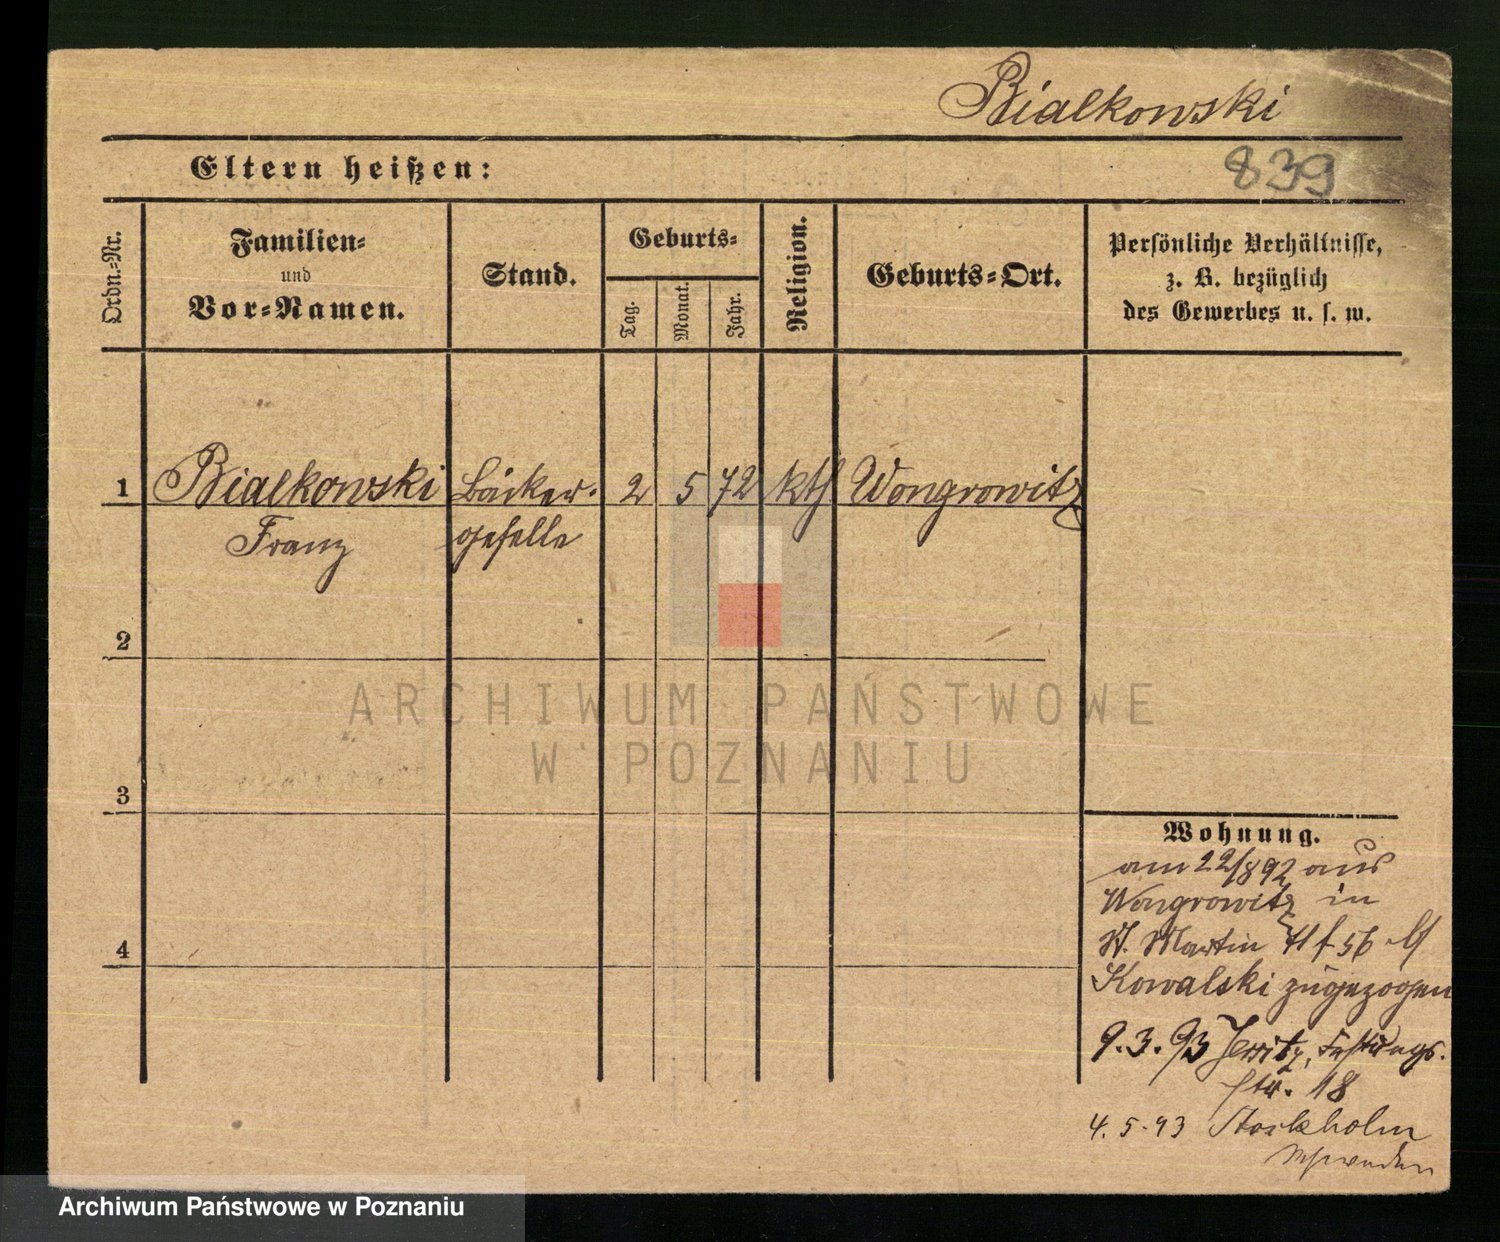 Bialkowski
839
Eltern heißen:
Ordn.-Nr.
Familien-
und
Vor-Namen.
Stand.
Geburts-
Tag.
Monat.
Jahr.
Religion.
Geburts-Ort.
Persönliche Verhältnisse,
z. B. bezüglich
des Gewerbes u. s. w.
1 Bialkowski Bäcker- 2 5 72 kth Wongrowitz
Franz geselle
2
3
4
Wohnung.
am 22/8 92 aus
Wongrowitz in
St. Martin 56 bei
Kowalski zugezogen
9.3.93 Jersitz, Festungs-
str. 18
4.5.93 Stockholm
Schweden
ARCHIWUM PAŃSTWOWE
W POZNANIU
Archiwum Państwowe w Poznaniu